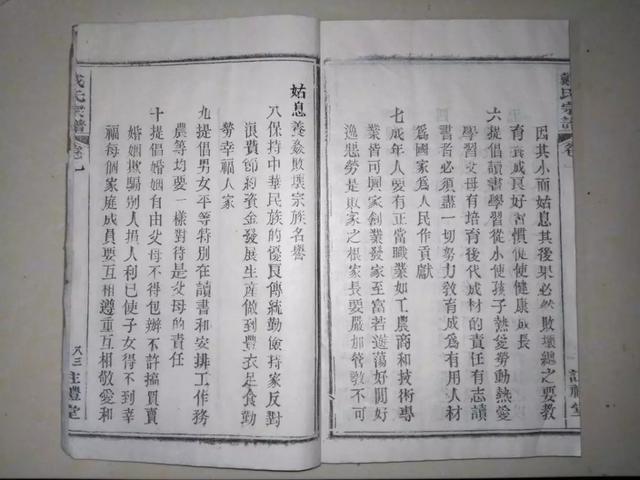 戴氏宗譜
卷一
因其小而姑息其後果必然敗壞總之要教
育養成良好習慣促使健康成長
六提倡讀書學習從小使孩子熱愛勞動熱愛
學習父母有培育後代成材的責任有志讀
書者必須盡一切努力教育成為有用人材
為國家為人民作貢獻
七成年人要有正當職業如工農商和技術專
業皆可興家創業發家至富若遊蕩好閒好
逸惡勞是敗家之根家長要嚴加管教不可
姑息養姦敗壞宗族名譽
八保持中華民族的優良傳統勤儉持家反對
浪費節約資金發展生產做到豐衣足食勤
勞幸福人家
九提倡男女平等特別在讀書和安排工作務
農等均要一樣對待是父母的責任
十提倡婚姻自由父母不得包辦不許搞買賣
婚姻欺騙別人損人利已使子女得不到幸
福每個家庭成員要互相遵重互相敬愛和
戴氏宗譜
卷一
八三
註禮堂